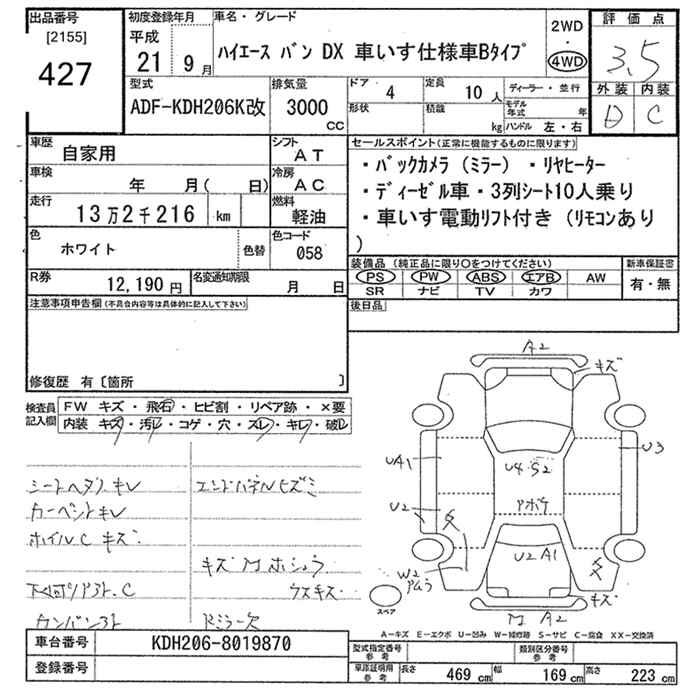 出品番号
[2155]
427
初度登録年月
平成
21 9月
車名・グレード
ハイエース バン DX 車いす仕様車Bタイプ
2WD
・
4WD
評価点
3.5
外装 内装
D C
型式
ADF-KDH206K改
排気量
3000
CC
ドア 4
定員 10人
ディーラー・並行
形状
積載 kg
モデル年式 年
ハンドル 左・右
車歴
自家用
シフト
AT
車検
年 月( 日)
冷房
AC
走行
13万2千216 km
燃料
軽油
色
ホワイト
色替
色コード
058
R券
12,190円
名変通知期限
月 日
セールスポイント(正常に機能するものに限ります)
・バックカメラ(ミラー) ・リヤヒーター
・ディーゼル車・3列シート10人乗り
・車いす電動リフト付き(リモコンあり
)
装備品(純正品に限り○をつけてください)
PS PW ABS エアB AW
SR ナビ TV カワ
新車保証書
有・無
後日品
注意事項申告欄(不具合内容等は具体的に記入して下さい)
修復歴 有〔箇所 〕
検査員
記入欄
FW キズ・飛石・ヒビ割・リペア跡・×要
内装 キズ・汚レ・コゲ・穴・スレ・キレ・破レ
シートヘタリ、キレ
カーペットキレ
ホイルC キズ
エンドパネルヒズミ
キズ M ホショウ
ウスキズ
Rミラー欠
A2
キズ
UA1
U2
U3
U4・S2
アホケ
U2 A1
W2
キズ
M A2
スペア
A−キズ E−エクボ U−凹み W−補修跡 S−サビ C−腐食 XX−交換済
車台番号
KDH206-8019870
登録番号
型式指定番号
参考
類別区分番号
参考
車庫証明用
参考
長さ 469 cm
幅 169 cm
高さ 223 cm